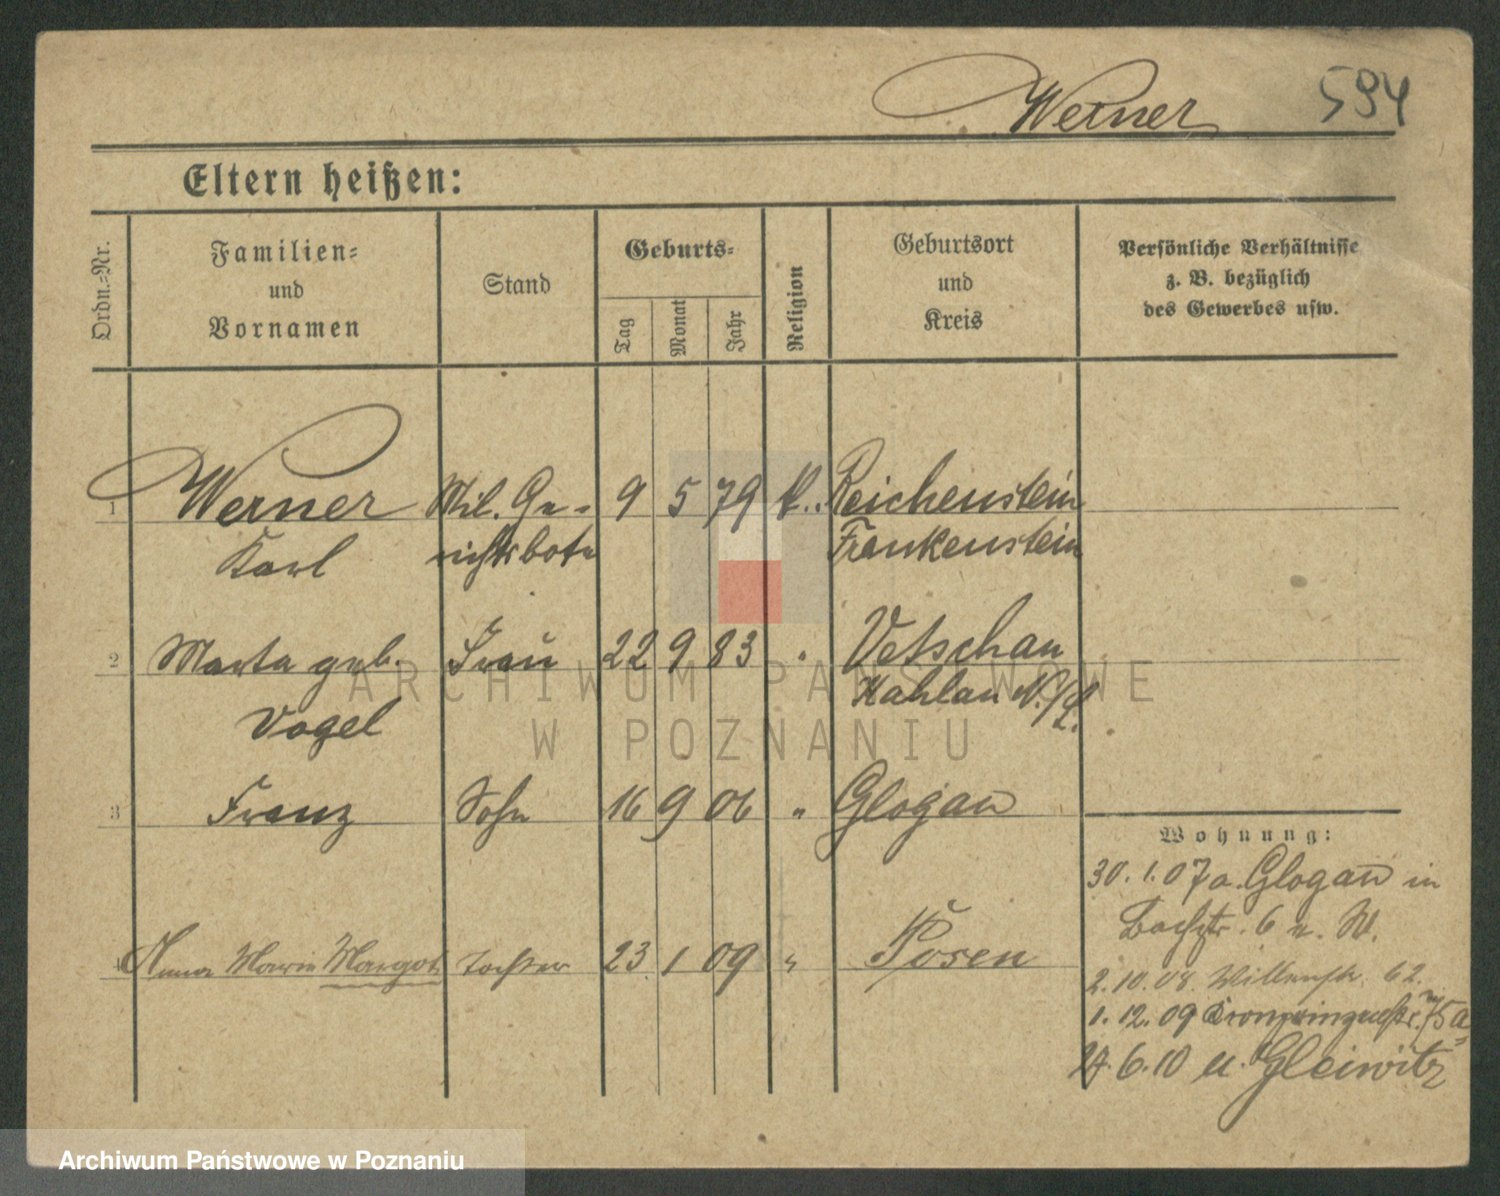 Werner 594
Eltern heißen:
Ordn.=Nr.
Familien=
und
Vornamen
Stand
Geburts=
Tag
Monat
Jahr
Religion
Geburtsort
und
Kreis
Persönliche Verhältnisse
z. B. bezüglich
des Gewerbes usw.
1 Werner Mil. Ge- 9 5 79 k. Reichenstein
Karl richtsbote Frankenstein
2 Marta geb. Frau 22 9 83 " Vetschau
Vogel Kahlau N./L.
3 Franz Sohn 16 9 06 " Glogau
4 Anna Marie Margot Tochter 23 1 09 " Posen
Wohnung:
30. 1. 07 a. Glogau in
6 u. W.
2. 10. 08. 62.
1. 12. 09 Kronprinzenstr. 75a
24. 6. 10 u. Gleiwitz
ARCHIWUM PAŃSTWOWE
W POZNANIU
Archiwum Państwowe w Poznaniu